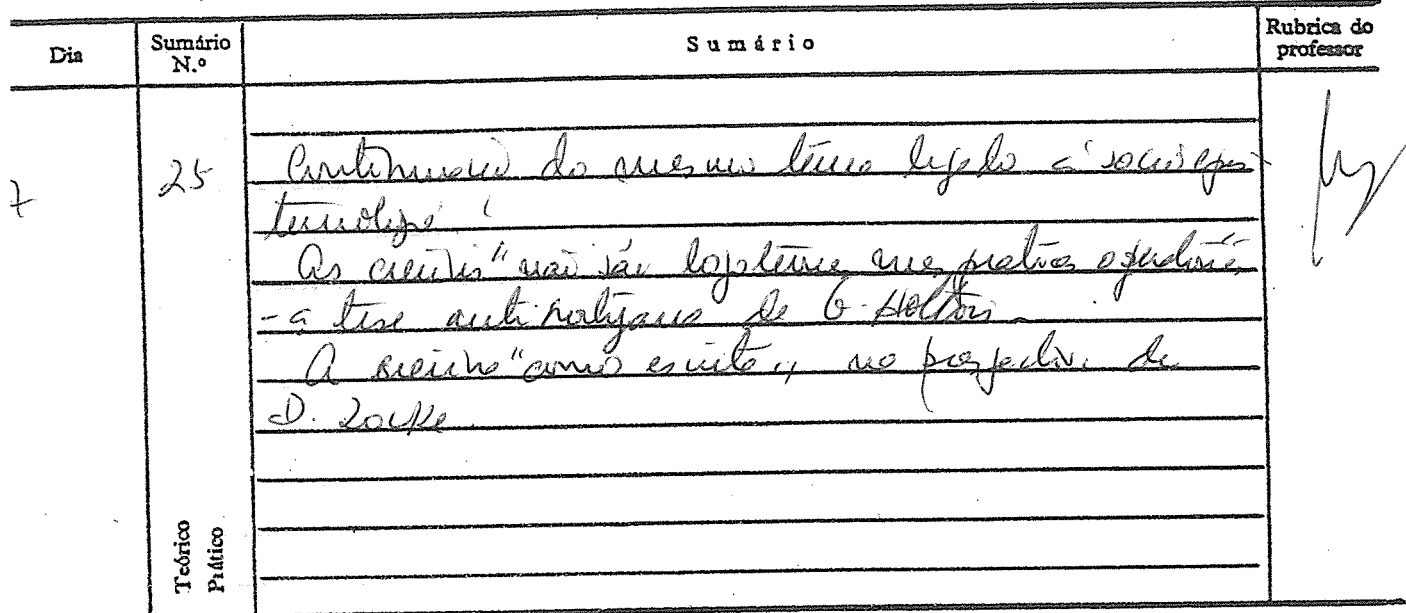 Dia
Sumário N.º
Sumário
Rubrica do professor
7
25
Continuação do mesmo tema ligado à socioepis-
temologia:
As ciências" não são nas práticas
- a tese de G. Holton.
A ciência "como escrita", na perspectiva de
D. Locke.
Teórico
Prático